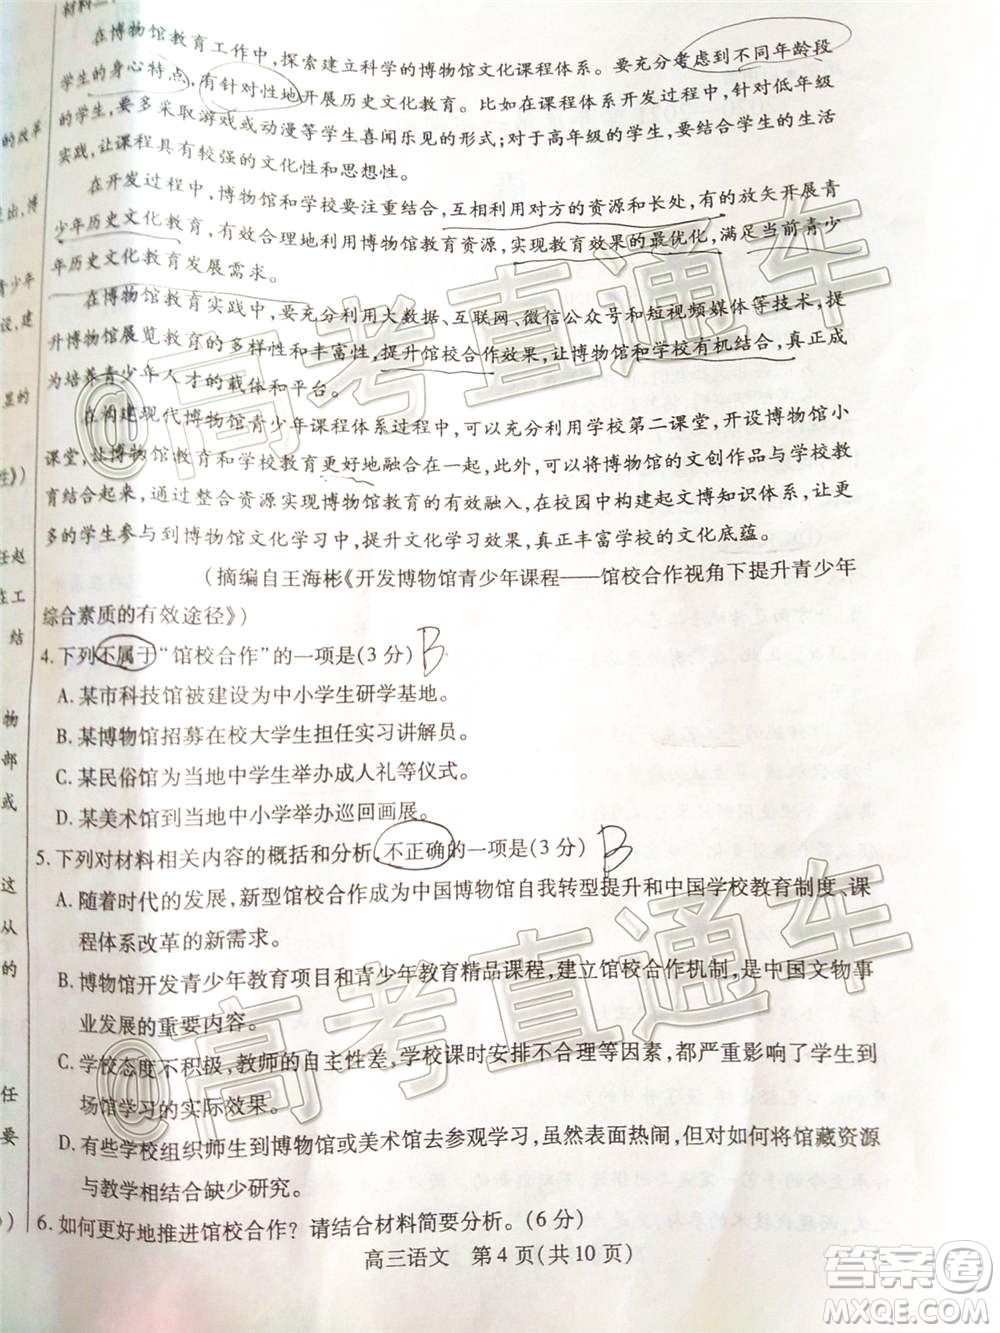 材料二：
在博物馆教育工作中，探索建立科学的博物馆文化课程体系。要充分考虑到不同年龄段
学生的身心特点，有针对性地开展历史文化教育。比如在课程体系开发过程中，针对低年级
的学生，要多采取游戏或动漫等学生喜闻乐见的形式；对于高年级的学生，要结合学生的生活
实践，让课程具有较强的文化性和思想性。
在开发过程中，博物馆和学校要注重结合，互相利用对方的资源和长处，有的放矢开展青
少年历史文化教育，有效合理地利用博物馆教育资源，实现教育效果的最优化，满足当前青少
年历史文化教育发展需求。
在博物馆教育实践中，要充分利用大数据、互联网、微信公众号和短视频媒体等技术，提
升博物馆展览教育的多样性和丰富性，提升馆校合作效果，让博物馆和学校有机结合，真正成
为培养青少年人才的载体和平台。
在构建现代博物馆青少年课程体系过程中，可以充分利用学校第二课堂，开设博物馆小
课堂，让博物馆教育和学校教育更好地融合在一起，此外，可以将博物馆的文创作品与美学教
育结合起来，通过整合资源实现博物馆教育的有效融入，在校园中构建起文博知识体系，让更
多的学生参与到博物馆文化学习中，提升文化学习效果，真正丰富学校的文化底蕴。
（摘编自王海彬《开发博物馆青少年课程——馆校合作视角下提升青少年
综合素质的有效途径》）
4.下列不属于“馆校合作”的一项是(3分) B
A.某市科技馆被建设为中小学生研学基地。
B.某博物馆招募在校大学生担任实习讲解员。
C.某民俗馆为当地中学生举办成人礼等仪式。
D.某美术馆到当地中小学举办巡回画展。
5.下列对材料相关内容的概括和分析，不正确的一项是(3分) B
A.随着时代的发展，新型馆校合作成为中国博物馆自我转型提升和中国学校教育制度、课
程体系改革的新需求。
B.博物馆开发青少年教育项目和青少年教育精品课程，建立馆校合作机制，是中国文物事
业发展的重要内容。
C.学校态度不积极，教师的自主性差，学校课时安排不合理等因素，都严重影响了学生到
场馆学习的实际效果。
D.有些学校组织师生到博物馆或美术馆去参观学习，虽然表面热闹，但对如何将馆藏资源
与教学相结合缺少研究。
6.如何更好地推进馆校合作？请结合材料简要分析。(6分)
高三语文 第4页(共10页)
的改革
出，博
青少年
设，建
里的
性》）
任赵
在工
结
物
部
或
这
从
的
任
要
@高考直通车
@高考直通车
答案卷
MXQE.COM